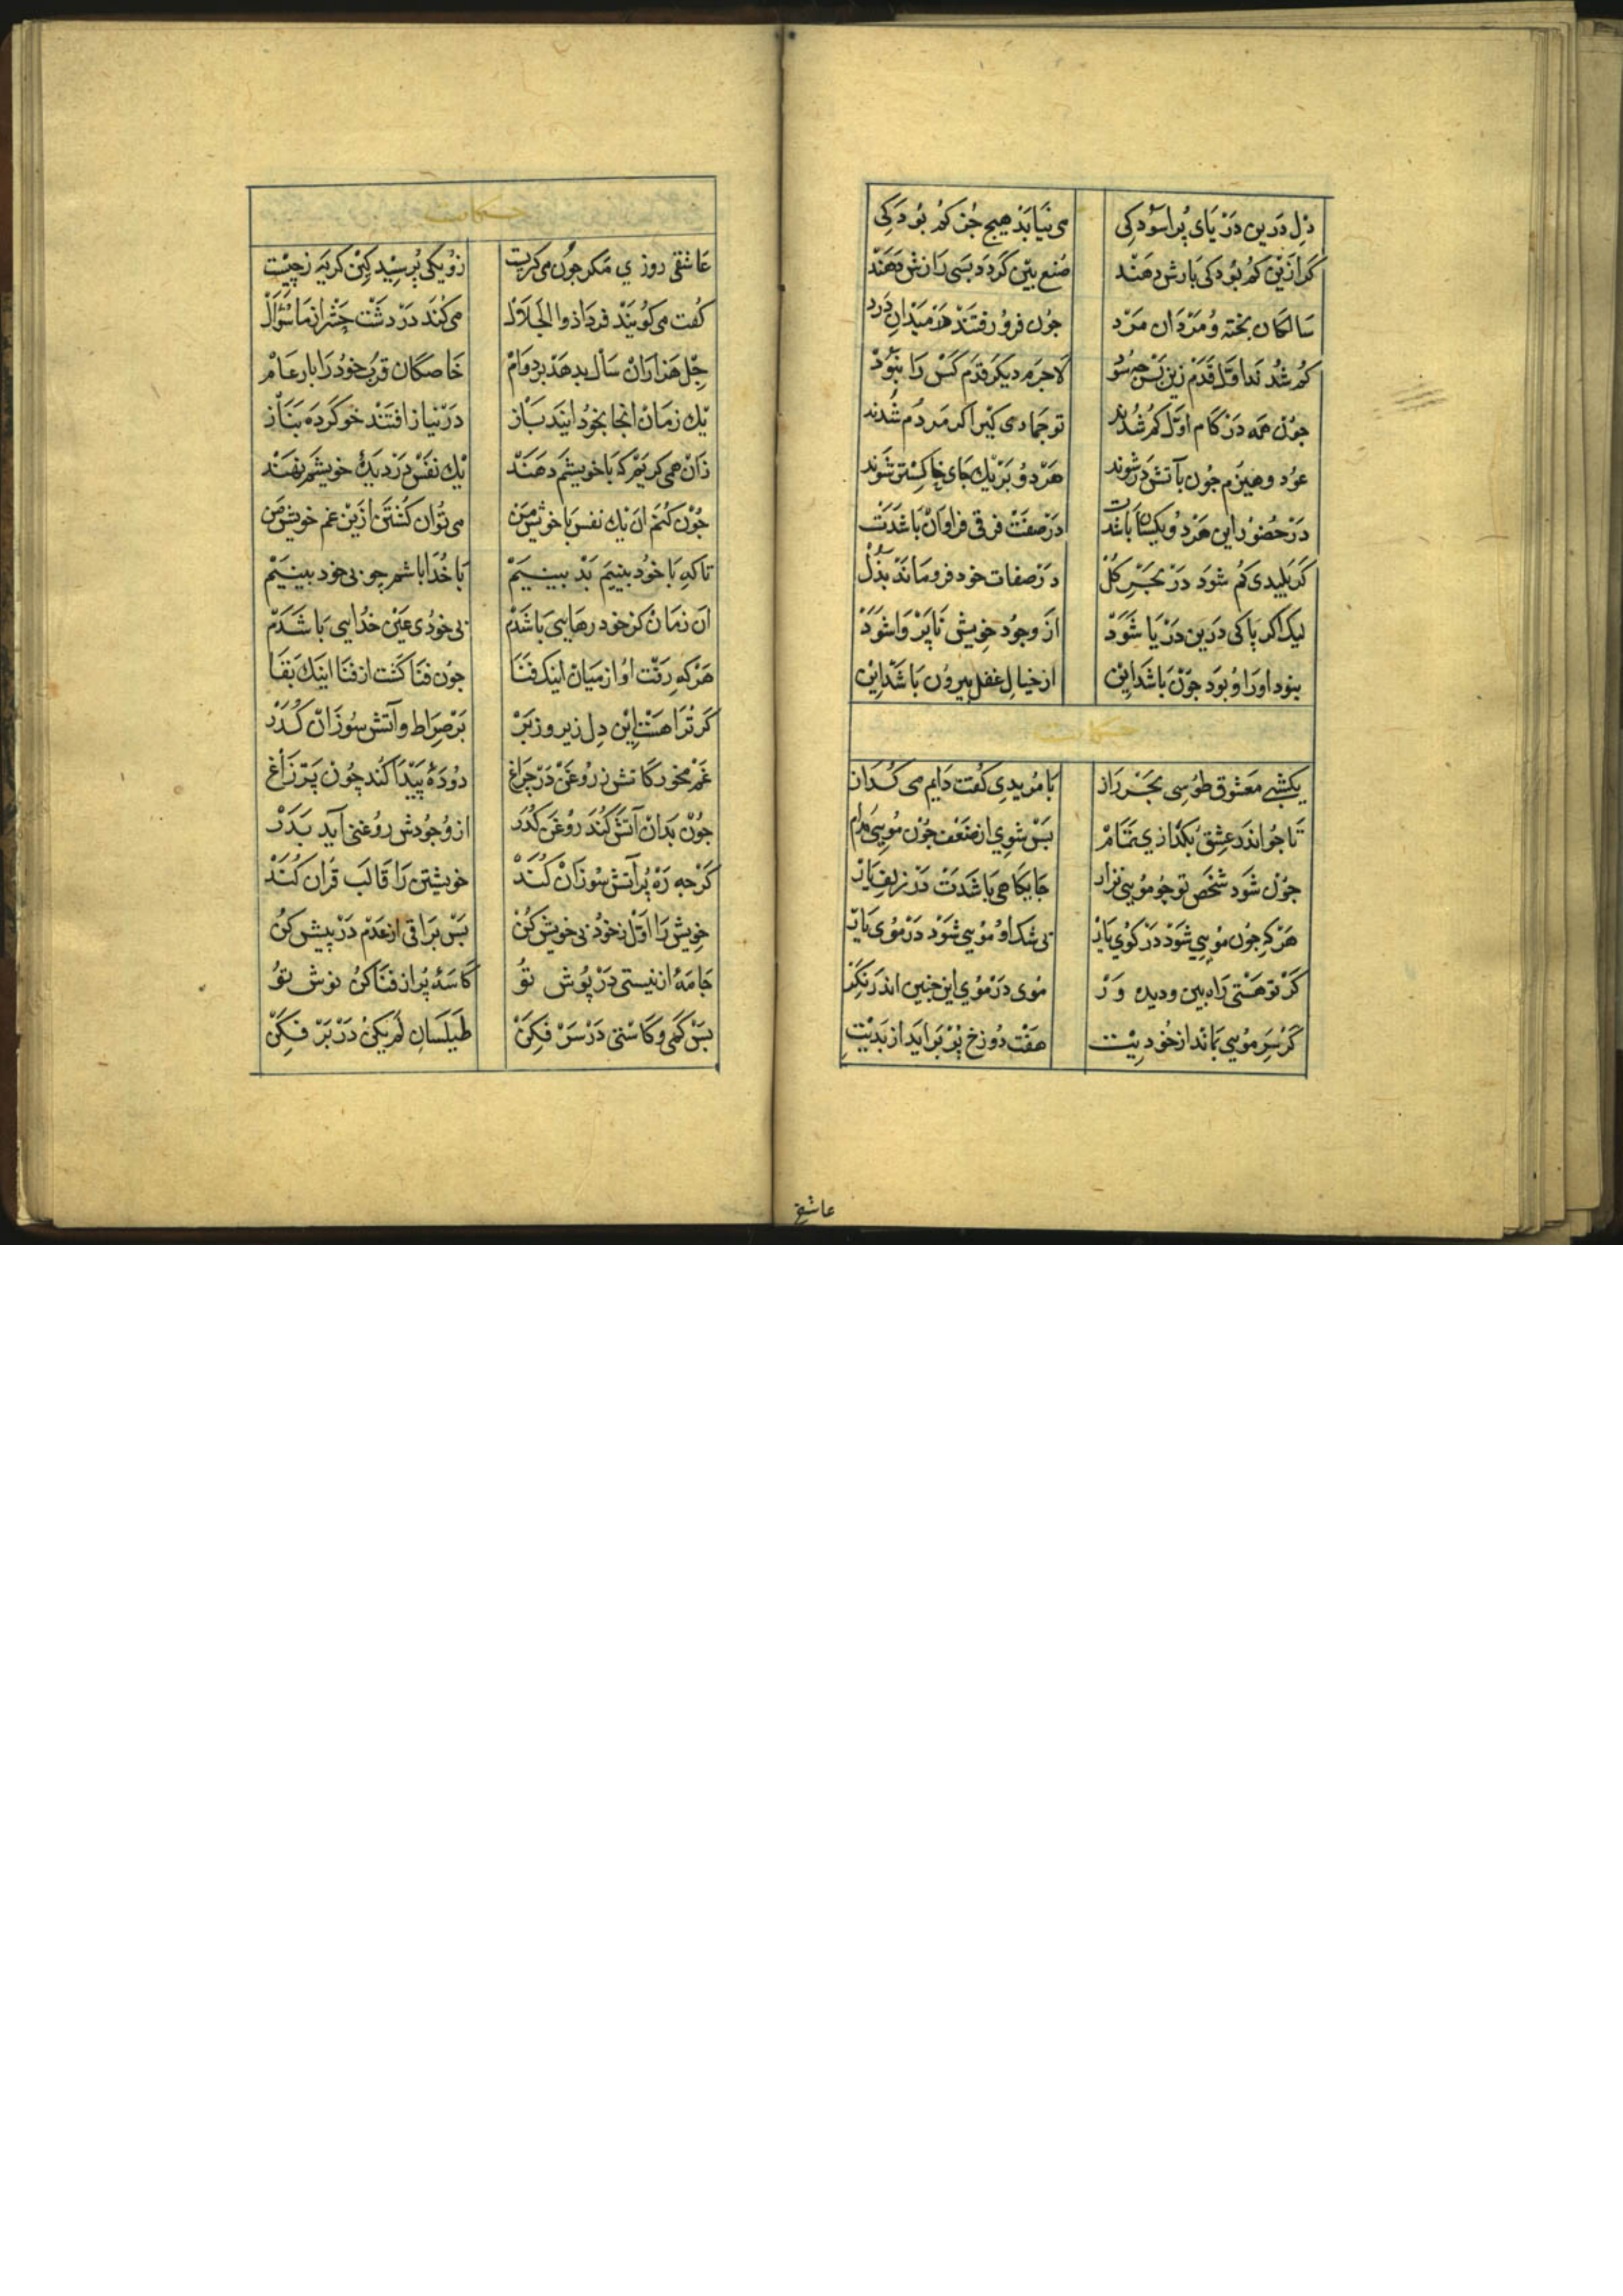 دِل دَرین دَرْیَای پُر اسوْدکی می نیَابَذ هیچ جُز کم بُودکی
کَر ازینْ کم بُودکی بَازش دهَنْد صُنع بیْن کردَد بسَی رَازش دَهَنْد
سَالکان بخته وُ مَرْدَان مَرْد جوُن فروُ رفتند دَر مَیْدانِ دَرد
کُم شُدند اوّل قدَم زین بَسْ جه سُود لَاجرَم دیکر قدَم کسْ رَا نبُوذ
جوُن همَه دَرْ کَام اوّل کم شُدند تو جمَادی کیر اکر مَردُم شُدند
عوُد وهیزَم جُون بآتش دَر شوند هَرْ دوُ بَرْ یك جَای خاکستر شوند
دَرْ حُضوُر این هَرْ دوُ یکسَان بَاشدت دَرْصفَتْ فرق فراوَانْ بَاشدَتْ
کر بَلیدی کم شوَد دَرْ بحَرِ کُلْ دَرْصفات خود فرومَاند بذُلْ
لیك اکر بَاکی دَرین دَرْیَا شوَدْ ازْ وجُودِ خویش نابَرْوَا شوَدْ
نبود اورَا وُ بوَد جوُنْ بَاشَد اینْ از خیالِ عقل بیروُن بَاشد ایْن
حکایت
یکشبی مَعشوُق طوُسِی بحَرْ رَاز بَا مُریدی کفت دَایم می کُدَاز
تَا جو اندر عِشق بُکذازی تمَامْ بَسْ شوی از ضعَف جوُن موُیی مدَام
جوُن شوَد شخَصِ تو جُو موُیی نزار جَایکاهی بَاشدَتْ دَرْ زلف یَار
هَرْکه جوُن موُیی شوَدْ دَرْ کوُی یَار بی شك اوُ موُیی شوَدْ دَرْ موُی یَار
کَرْ توُ هسْتی رَاه بین ودیده وَرْ موُی دَرْ موُی این جنین اندَر نکَر
کَرْ سَرِ موُیی بمَاند از خُودیت هفَت دُوزخ بُرْ بَرایَد از بَدیْتِ
عاشقی
حکایت
عَاشقی روزی مَکر جوُن می کریت زوُ یکی پُرسیْد کینْ کریَه زچیْست
کفت می کوُینْد فردَا ذوالجَلَالْ می کُند دَرْ دشْت حشْر از مَا سُؤَالْ
جِلْ هَزارَانْ سَالْ بدهَدْ بر دوَامْ خَاصکَان قرُب خوُد رَا بَار عَامْ
یك زمَانْ انجا بخوُد اینَد بَاز دَرْ نیَاز افتند خو کردَه بنَاز
زَانْ همی کریم که بَا خویشم دهَنْد یك نفَسْ دَرْ دیَدۀ خویشم نهَنْد
جوُنْ کُنم ان یك نفس بَا خویش منْ می توُان کشتن ازین غم خویش منْ
تاکه بَا خوُد بینیم بَدْ بینیَمْ بَا خُدَا بَاشم جو بی خود بینیَمْ
ان زمَانْ کز خود رهَایی بَاشدَمْ بی خوُدی عَیْن خدُایی بَاشدَمْ
هَرْ که رَفت اوُ از میَانْ اینك فنَا جوُن فنَا کشت از فنا اینك بَقا
کَر ترُا هسْت این دِل زیر وزبَرْ بَرْصِرَاط وآتش سوُزَانْ کذَرْ
غَمْ مخور کاتش زروُغنْ دَرْ چرَاغ دوُدَۀ پیْدَا کند چوُن پَرِّ زَاغ
جوُنْ بَدَانْ آتش کُندْ روُغن کذَرْ از وجُودش روُغنی آید بَدَرْ
کَرْ جه رَه پُر آتش سوُزَانْ کُندْ خویشتن رَا قالَب قرُان کُندْ
خویش رَا اوّل زخوُد بی خویش کنْ بَسْ برَاقی از عَدَم دَرْ پیش کنْ
جَامَۀ از نیستی دَرْپوُش توُ کَاسَۀ پُر از فنَا کن نوش توُ
بَسْ کمَی وکَاستی دَرْ سَرْ فکِنْ طیلَسَانِ لَم یکنُ دَرْ بَرْ فکِنْ